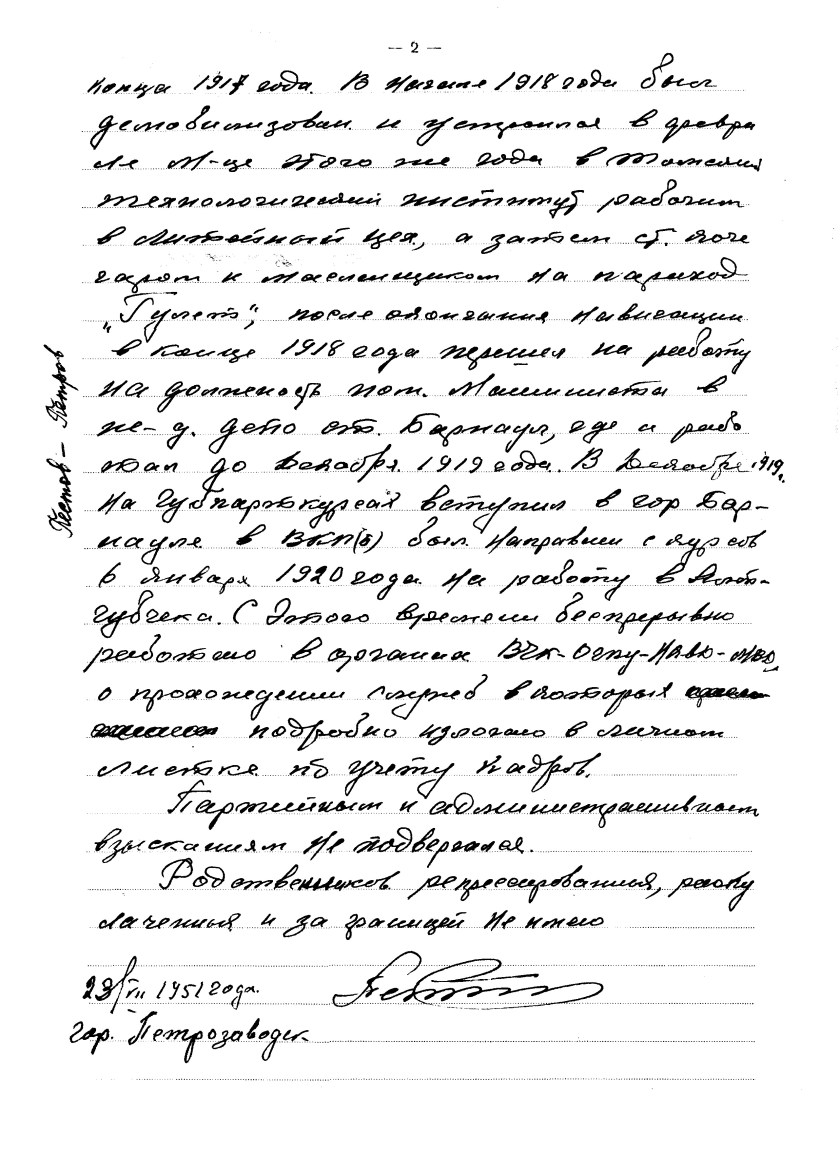 — 2 —
конца 1917 года. В начале 1918 года был
демобилизован и устроился в февра
ле м-це этого же года в Томский
технологический институт рабочим
в литейный цех, а затем ст. коче
гаром и масленщиком на пароход
после окончания навигации
в конце 1918 года перешел на работу
на должность пом. машиниста в
ж-д. депо ст. Барнаул, где и рабо
тал до декабря 1919 года. В декабре 1919г.
на Губпарткурсах вступил в гор Бар-
науле в ВКП(б) был направлен с курсов
6 января 1920 года на работу в Алт-
губчека. С этого времени беспрерывно
работаю в органах ВЧК-ОГПУ-НКВД-МГБ,
о прохождении служеб в которых
подробно излагаю в личном
листке по учету кадров.
Партийным и административным
взысканиям не подвергался.
Родственников репрессированных, раску
лаченных и за границей не имею
23/VII 1951 года.
гор. Петрозаводск
Пестов – Петров